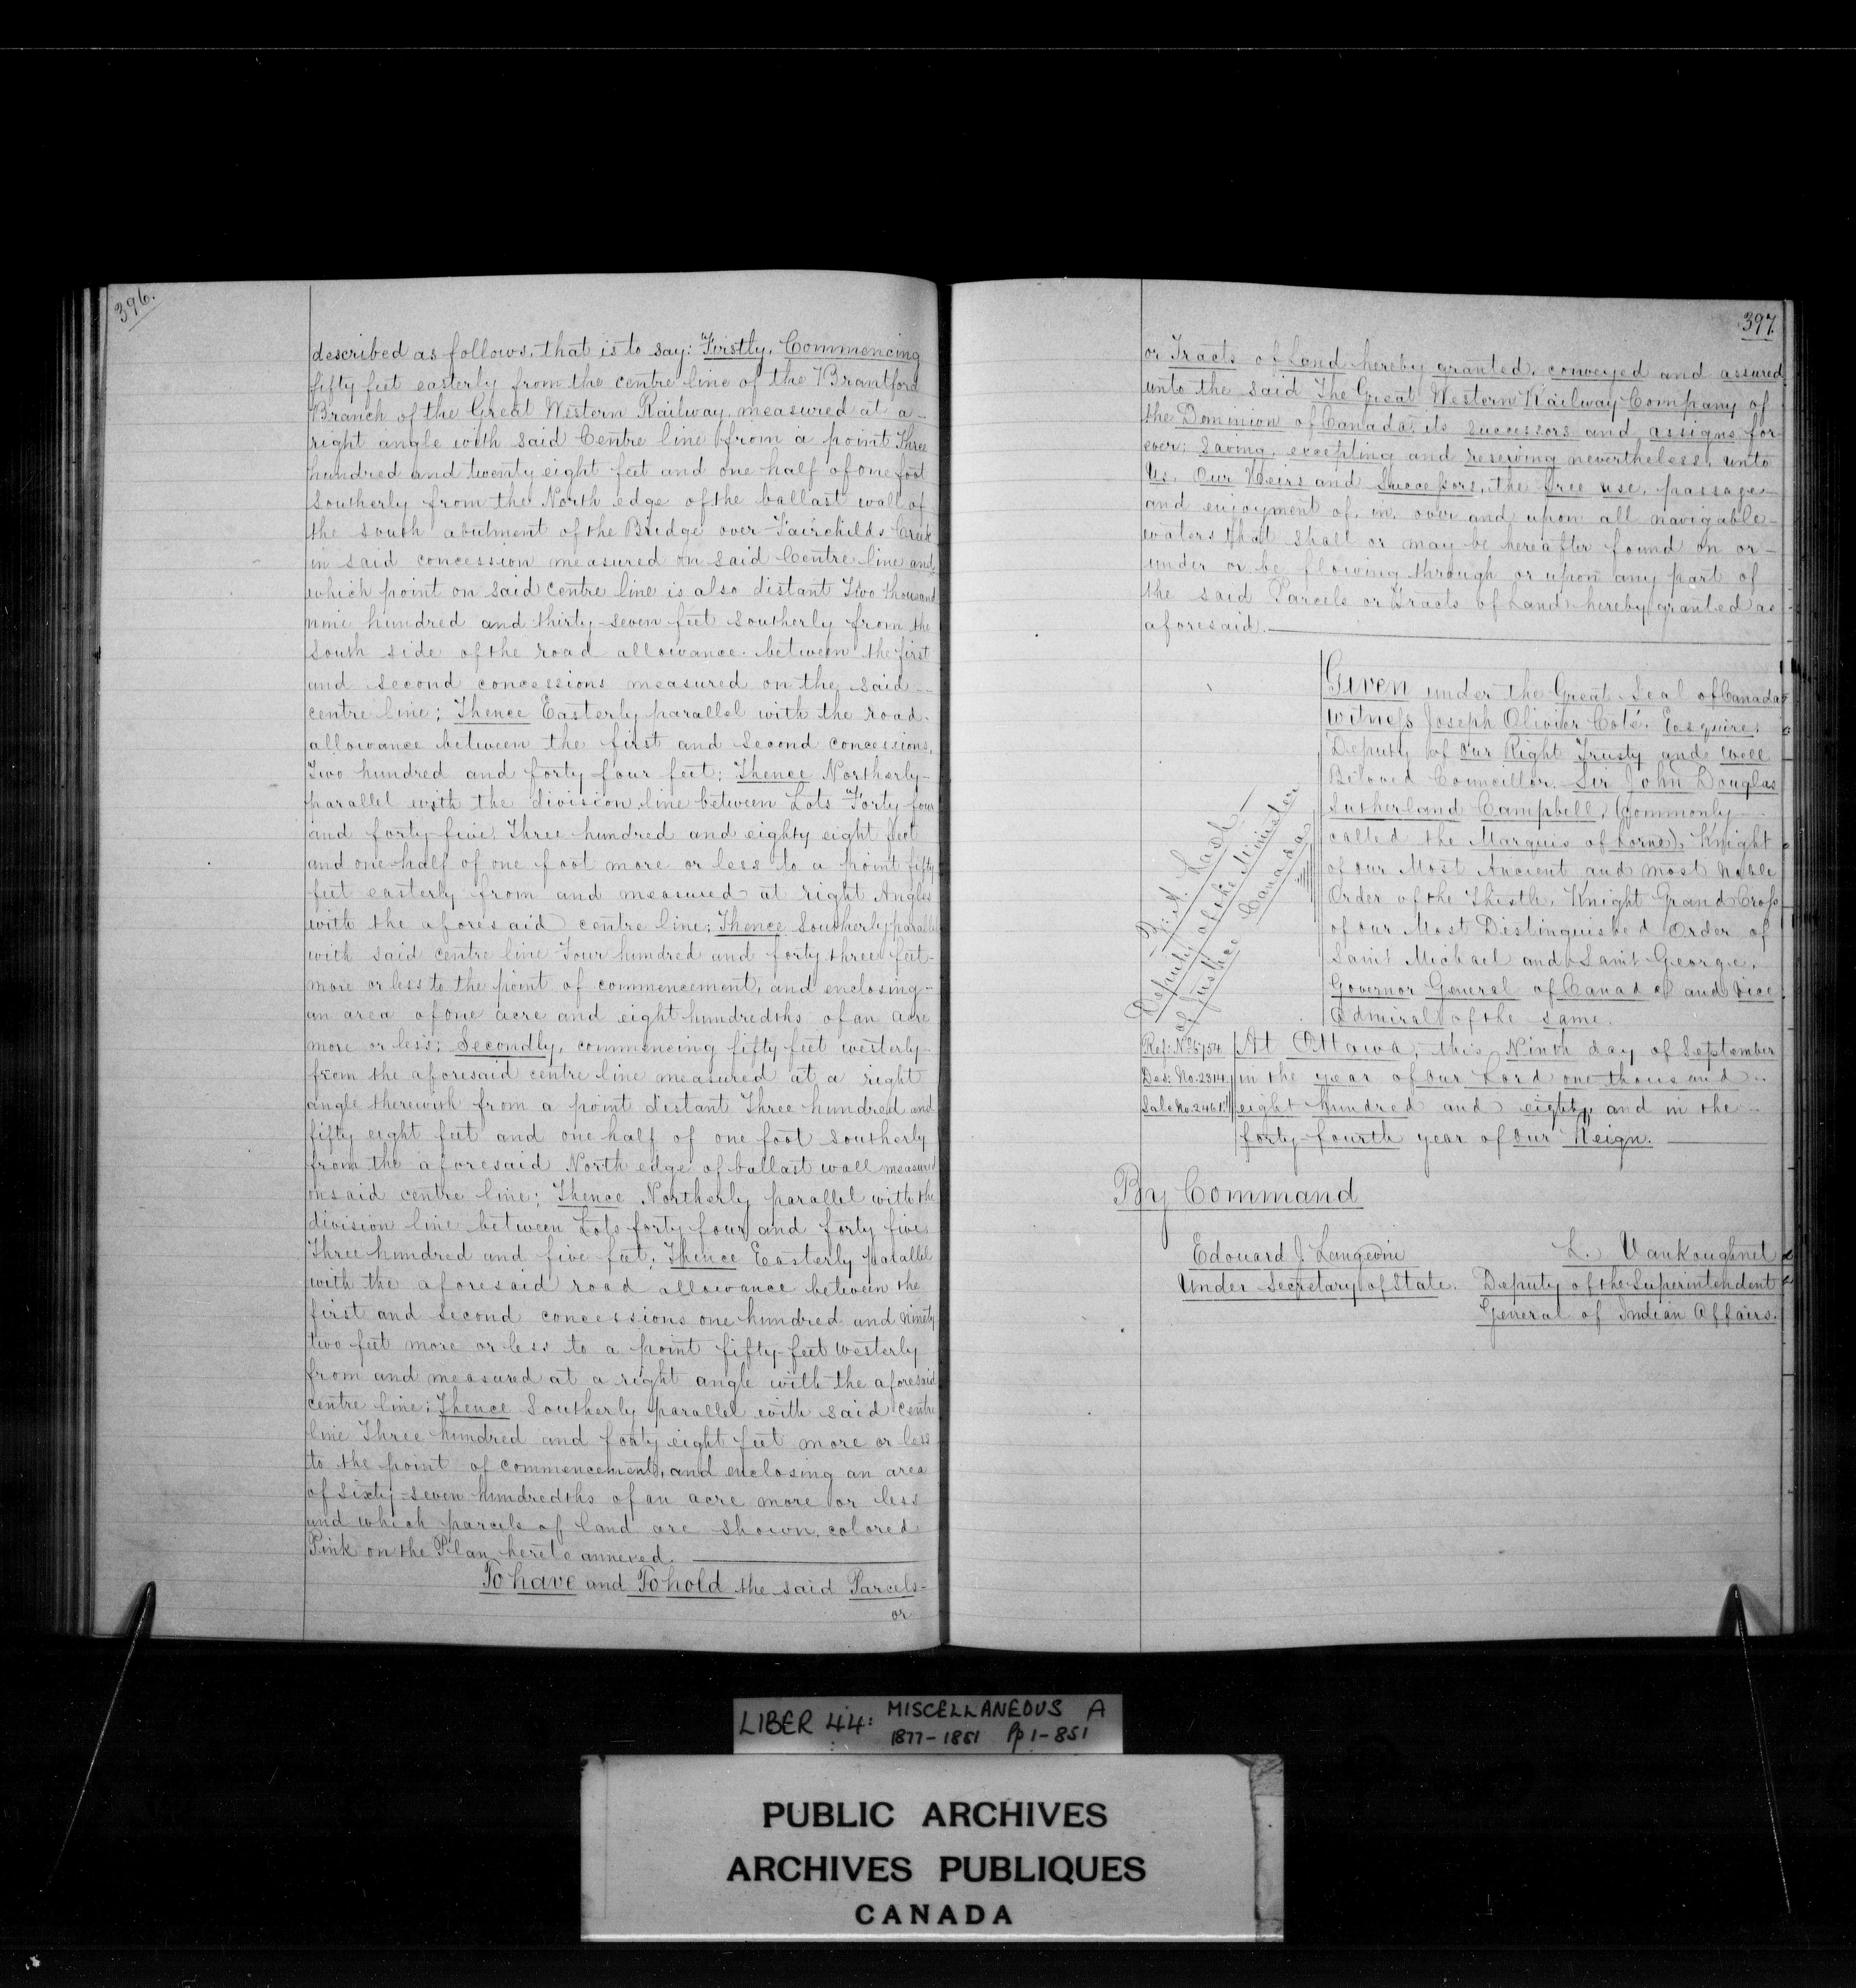 396.
described as follows, that is to say: Firstly, Commencing
fifty feet easterly from the centre line of the Brantford
Branch of the Great Western Railway, measured at a
right angle with said Centre line from a point Three
hundred and twenty eight feet and one half of one foot
Southerly from the North edge of the ballast wall of
the south abutment of the Bridge over Fairchilds Creek
in said concession measured on said Centre line and
which point on said centre line is also distant Two thousand
nine hundred and thirty-seven feet Southerly from the
South side of the road allowance between the first
and second concessions measured on the said
centre line; Thence Easterly parallel with the road
allowance between the first and Second concessions,
Two hundred and forty four feet; Thence Northerly
parallel with the division line between Lots Forty four
and forty five Three hundred and eighty eight feet
and one half of one foot more or less to a point fifty
feet easterly from and measured at right Angles
with the aforesaid centre line; Thence Southerly parallel
with said centre line Four hundred and forty three feet
more or less to the point of commencement, and enclosing
an area of one acre and eight hundredths of an acre
more or less; Secondly, commencing fifty feet westerly
from the aforesaid centre line measured at a right
angle therewith from a point distant Three hundred and
fifty eight feet and one half of one foot southerly
from the aforesaid North edge of ballast wall measured
on said centre line; Thence Northerly parallel with the
division line between Lots forty four and forty five
Three hundred and five feet; Thence Easterly parallel
with the aforesaid road allowance between the
first and second concessions one hundred and ninety
two feet more or less to a point fifty-feet westerly
from and measured at a right angle with the aforesaid
centre line; Thence Southerly parallel with said centre
line Three hundred and forty eight feet more or less
to the point of commencement, and enclosing an area
of sixty-seven hundredths of an acre more or less
and which parcels of land are shown colored
Pink on the Plan hereto annexed.
To have and To hold the said Parcels
or
397.
or Tracts of Land hereby granted, conveyed and assured
unto the said The Great Western Railway Company of
the Dominion of Canada, its successors and assigns for
ever; Saving, excepting and reserving nevertheless, unto
Us, Our Heirs and Successors, the free use, passage
and enjoyment of, in, over and upon all navigable
waters that shall or may be hereafter found on or
under or be flowing through or upon any part of
the said Parcels or Tracts of Land hereby granted as
aforesaid.
Given under the Great Seal of Canada
Witness Joseph Olivier Coté, Esquire,
Deputy of Our Right Trusty and Well
Beloved Councillor, Sir John Douglas
Sutherland Campbell, (commonly
called the Marquis of Lorne), Knight
of our Most Ancient and most Noble
Order of the Thistle, Knight Grand Cross
of our Most Distinguished Order of
Saint Michael and Saint George,
Governor General of Canada and Vice
Admiral of the same.
Lash
Deputy of the Minister
of Justice Canada
Ref: No.
Des: No. 2314
Sale No. 2461
At Ottawa, this Ninth day of September
in the year of Our Lord one thousand
eight hundred and eighty, and in the
forty-fourth year of Our Reign.
By Command
Edouard J. Langevin
Under Secretary of State.
L. Vankoughnet
Deputy of the Superintendent
General of Indian Affairs.
LIBER 44: MISCELLANEOUS A
1877-1881 Pp 1-851
PUBLIC ARCHIVES
ARCHIVES PUBLIQUES
CANADA